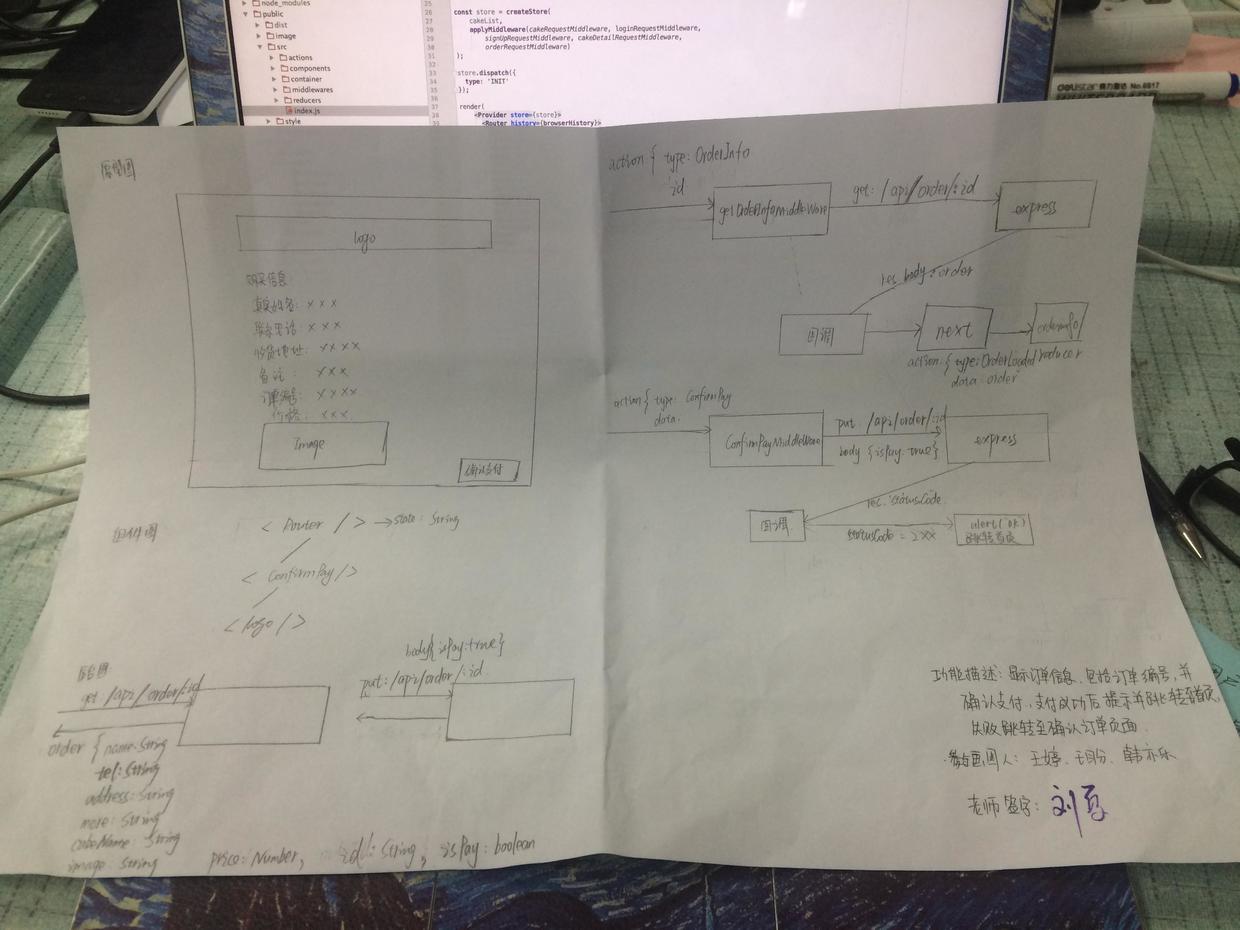 node_modules
public
dist
image
src
actions
components
container
middlewares
reducers
index.js
style
25
26
27
28
29
30
31
32
33
34
35
36
37
38
39
const store = createStore(
cakeList,
applyMiddleware(cakeRequestMiddleware, loginRequestMiddleware,
signUpRequestMiddleware, cakeDetailRequestMiddleware,
orderRequestMiddleware)
);
store.dispatch({
type: 'INIT'
});
render(
<Provider store={store}>
<Router history={browserHistory}>
deli 得力 No.6817
原型图
logo
购买信息:
真实姓名: ×××
联系电话: ×××
收货地址: ××××
备注 ×××
订单编号: ××××
价格: ×××
Image
确认支付
组件图
< Router /> → state: String
< ConfirmPay />
< logo />
get: /api/order/:id
order { name: String
tel: String
address: String
more: String
cakeName: String
image: String
price: Number, id: String, isPay: boolean
body{isPay:true}
put: /api/order/:id
action { type: OrderInfo
id
getOrderInfoMiddleWare
get: /api/order/:id
express
res.body: order
回调
next
orderInfo
reducer
action: { type: OrderLoaded
data: order
action { type: ConfirmPay
data.
ConfirmPayMiddleWare
put: /api/order/:id
body {isPay: true}
express
res.statusCode
回调
statusCode = 2××
alert(ok)
跳转首页
功能描述: 显示订单信息,包括订单编号,并
确认支付,支付成功后提示并跳转至首页,
失败跳转至确认订单页面
画图人: 王婷、
老师签字: 刘